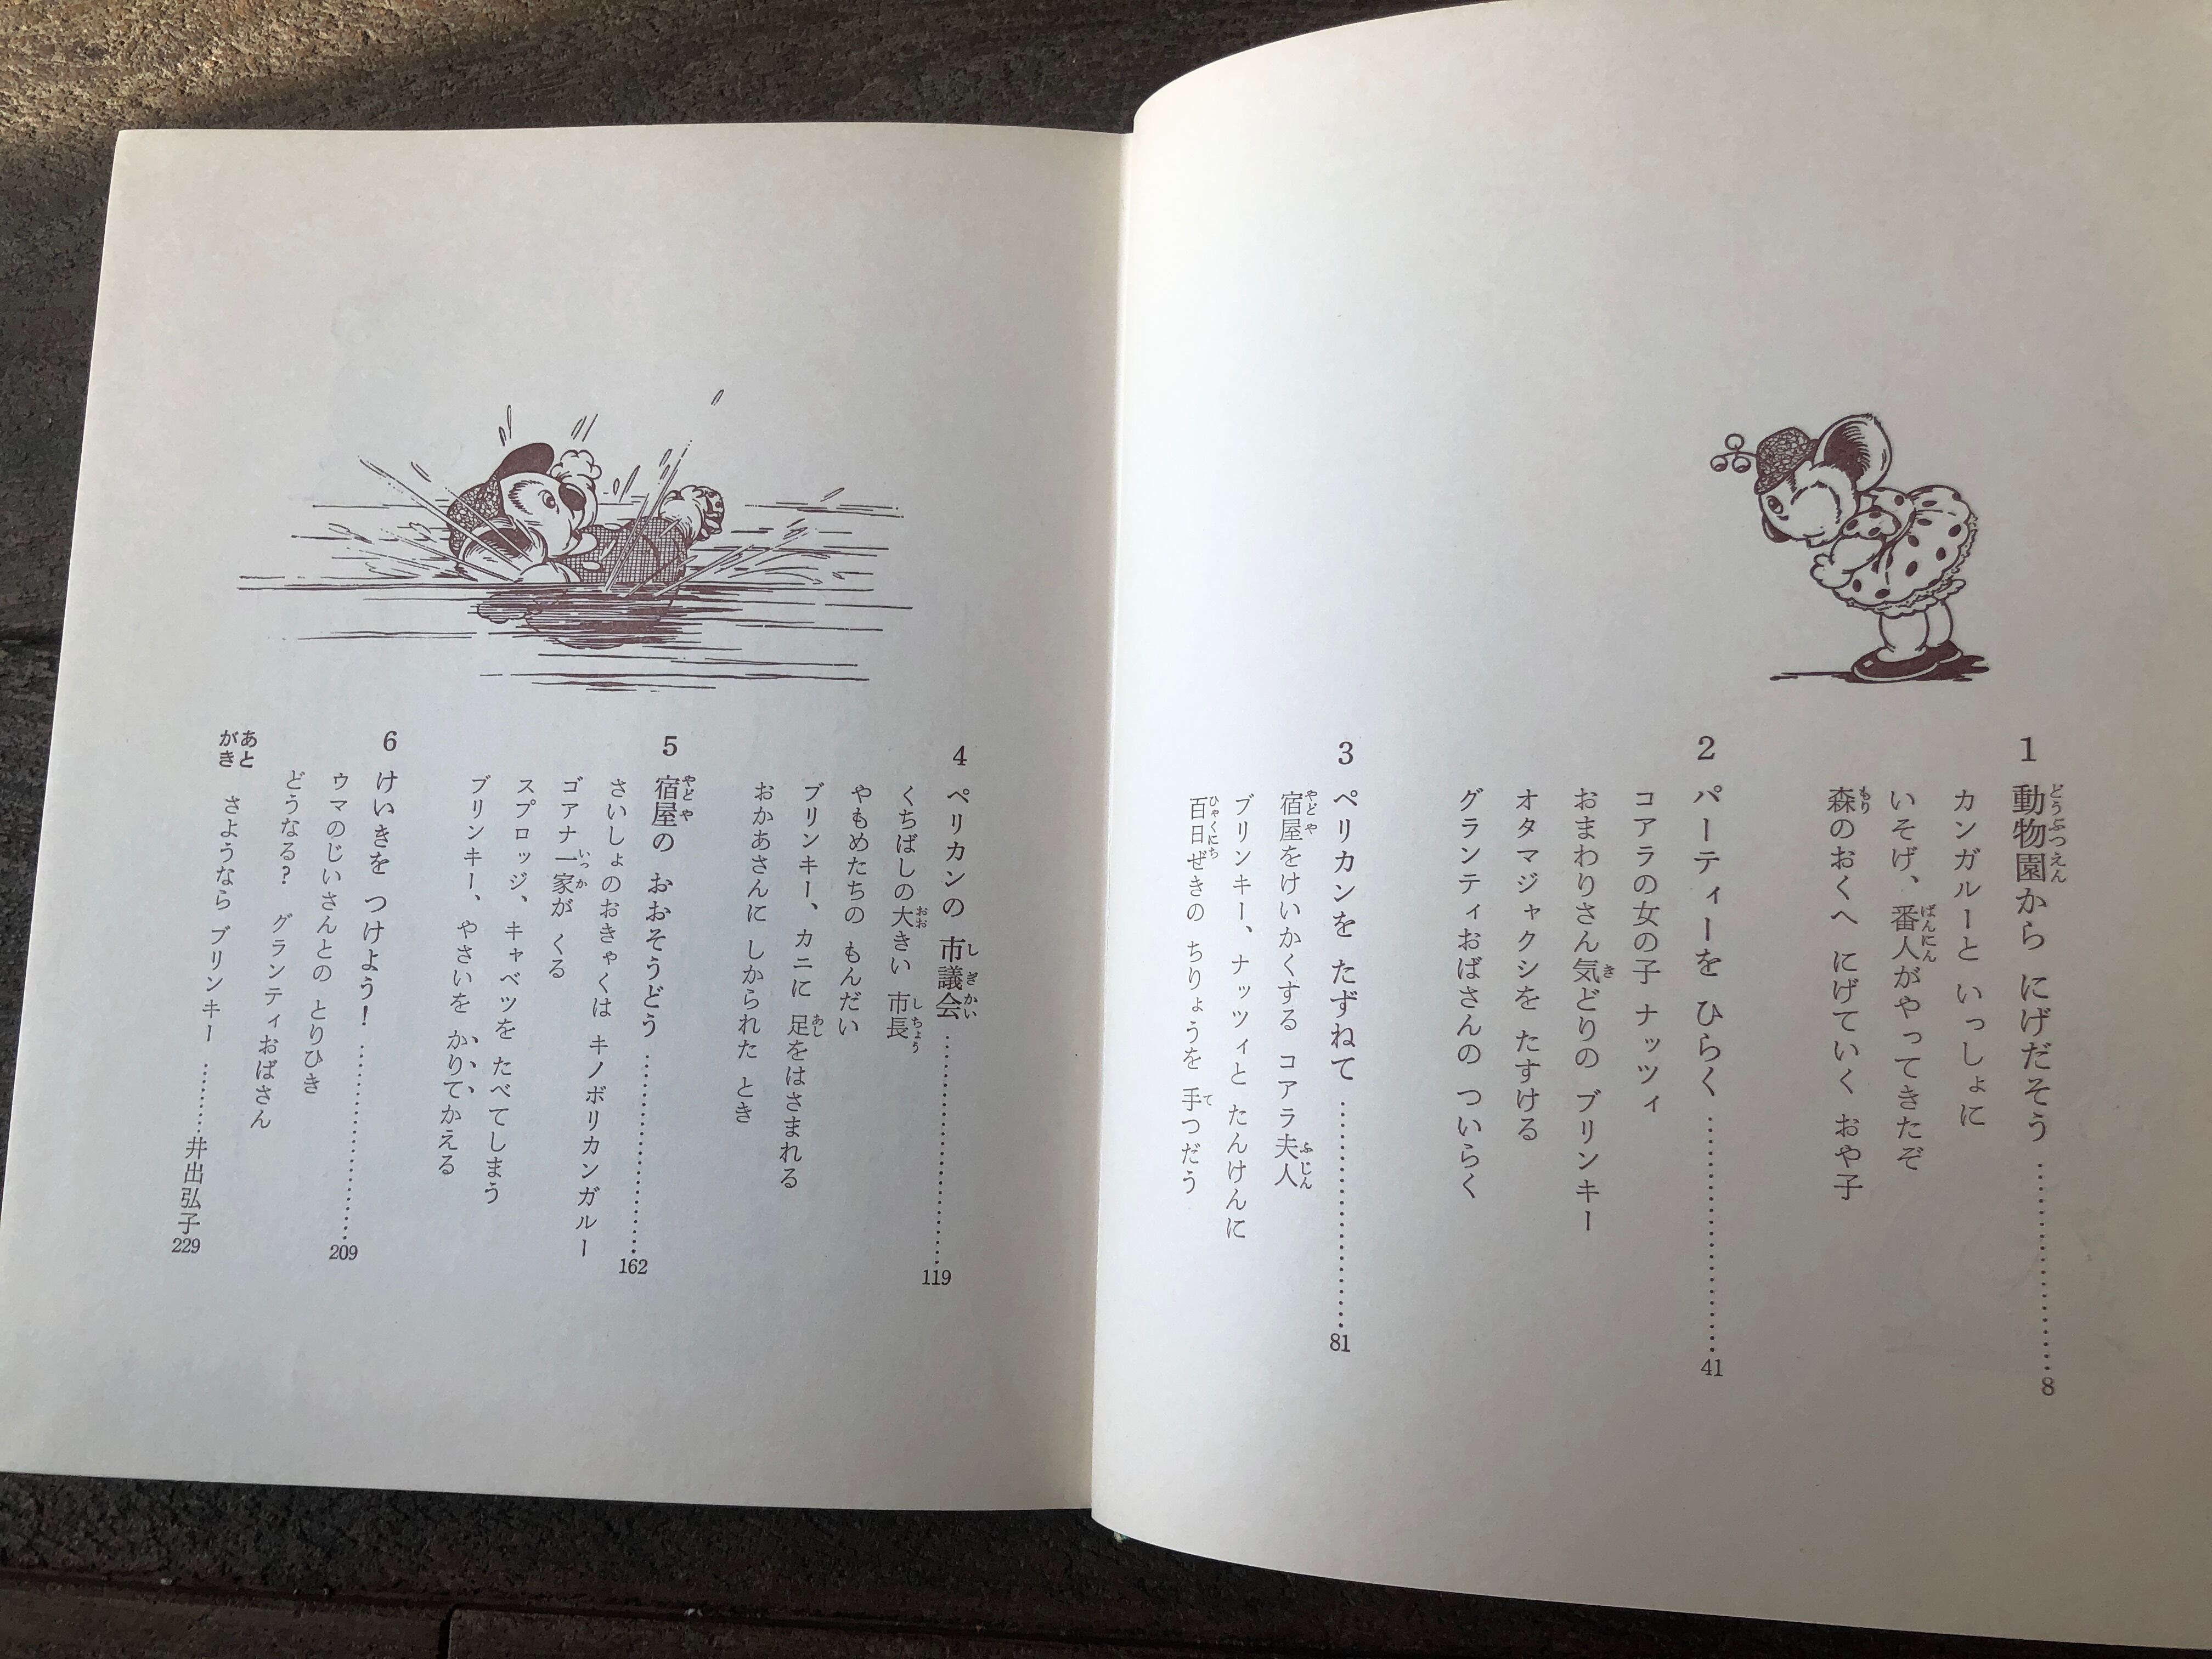 1 動物園から にげだそう……………………8
カンガルーと いっしょに
いそげ、番人がやってきたぞ
森のおくへ にげていく おや子
2 パーティーを ひらく……………………41
コアラの女の子 ナッツィ
おまわりさん気どりの ブリンキー
オタマジャクシを たすける
グランティおばさんの ついらく
3 ペリカンを たずねて……………………81
宿屋をけいかくする コアラ夫人
ブリンキー、ナッツィと たんけんに
百日ぜきの ちりょうを 手つだう
4 ペリカンの 市議会……………………119
くちばしの大きい 市長
やもめたちの もんだい
ブリンキー、カニに 足をはさまれる
おかあさんに しかられた とき
5 宿屋の おおそうどう……………………162
さいしょのおきゃくは キノボリカンガルー
ゴアナ一家が くる
スプロッジ、キャベツを たべてしまう
ブリンキー、やさいを かりてかえる
6 けいきを つけよう!……………………209
ウマのじいさんとの とりひき
どうなる? グランティおばさん
あとがき さようなら ブリンキー…………井出弘子229